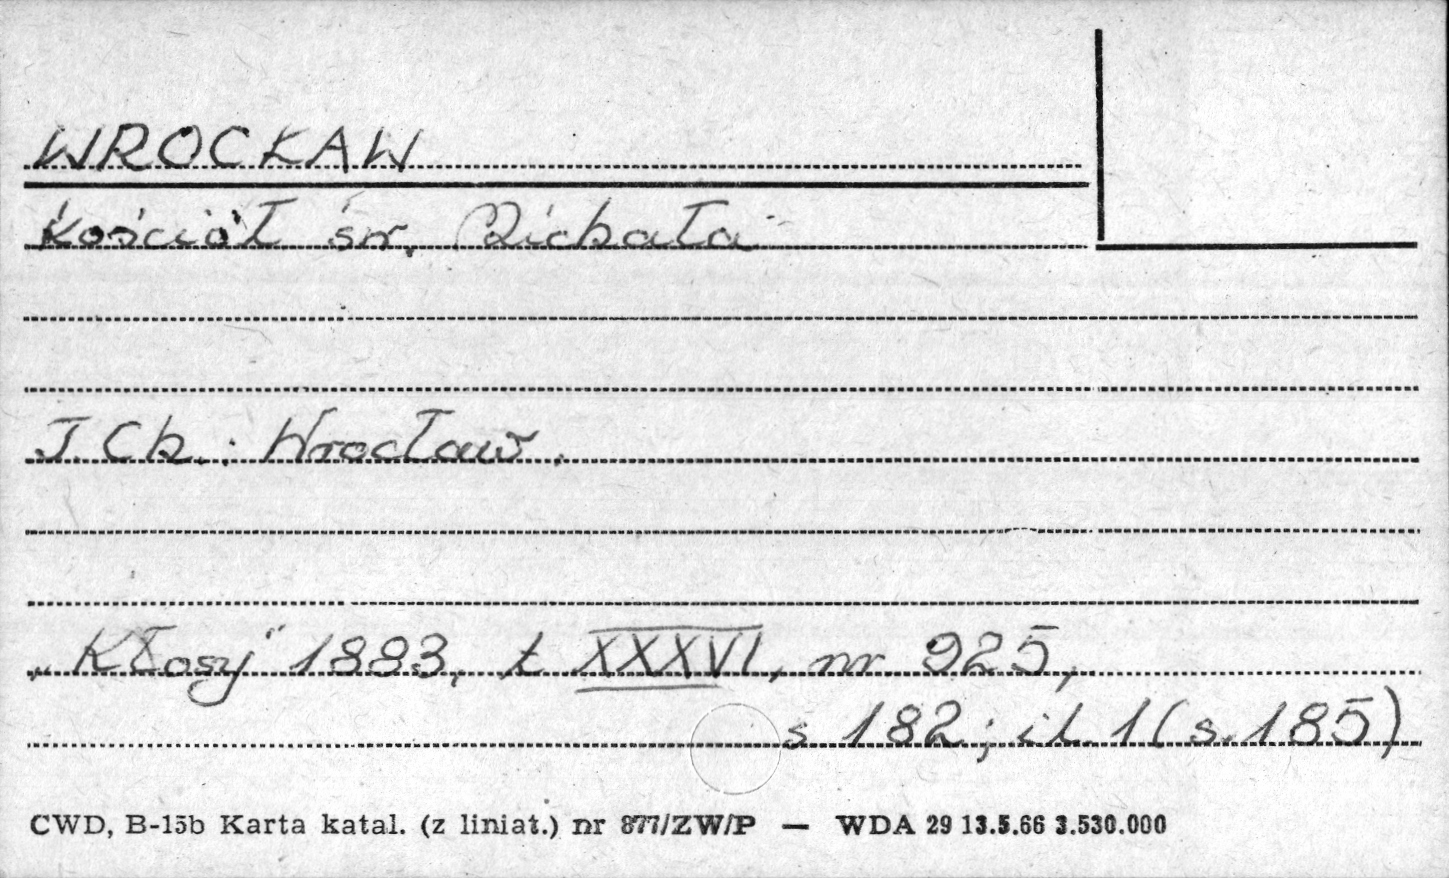 WROCŁAW
Kościół św. Michała
J. Ch.: Wrocław.
„Kłosy" 1883, t. XXXVI, nr 925,
s. 182; il. 1 (s. 185)
CWD, B-15b Karta katal. (z liniat.) nr 877/ZW/P — WDA 29 13.5.66 3.530.000